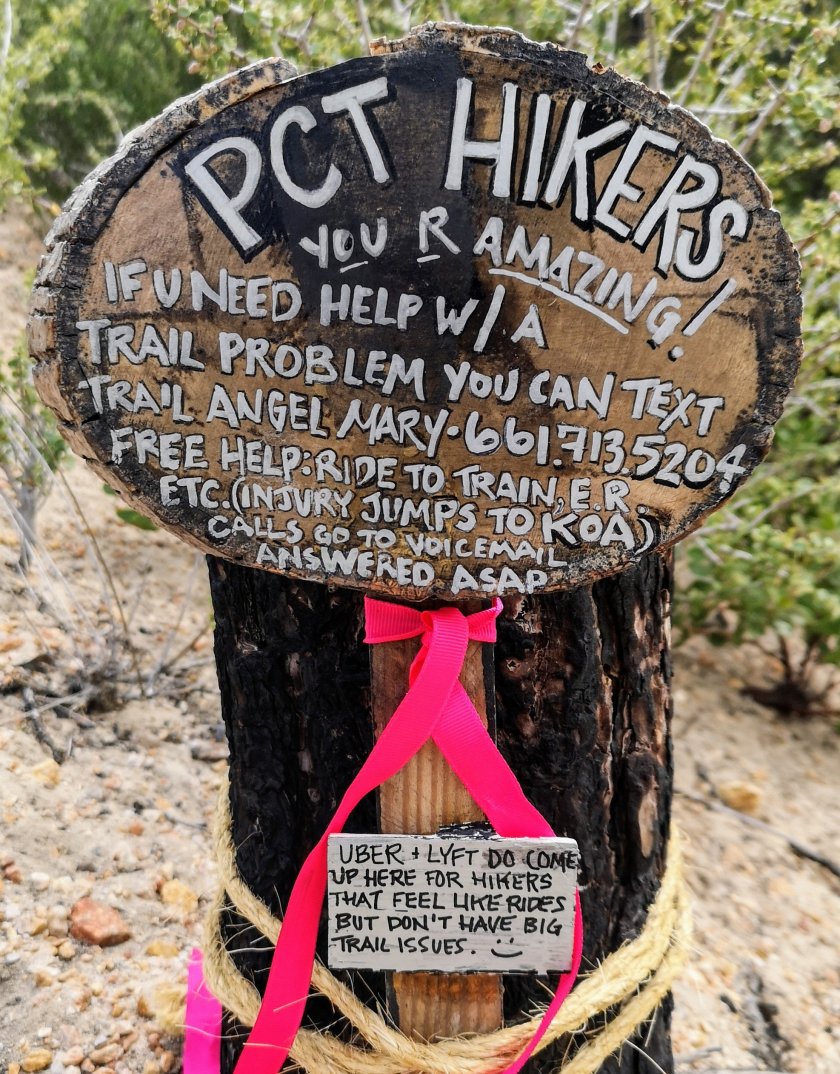 PCT HIKERS
YOU R AMAZING!
IF U NEED HELP W/ A
TRAIL PROBLEM YOU CAN TEXT
TRAIL ANGEL MARY·661.713.5204
FREE HELP:RIDE TO TRAIN, E.R.
ETC.(INJURY JUMPS TO KOA)
CALLS GO TO VOICEMAIL
ANSWERED ASAP
UBER + LYFT DO COME
UP HERE FOR HIKERS
THAT FEEL LIKE RIDES
BUT DON'T HAVE BIG
TRAIL ISSUES. :)